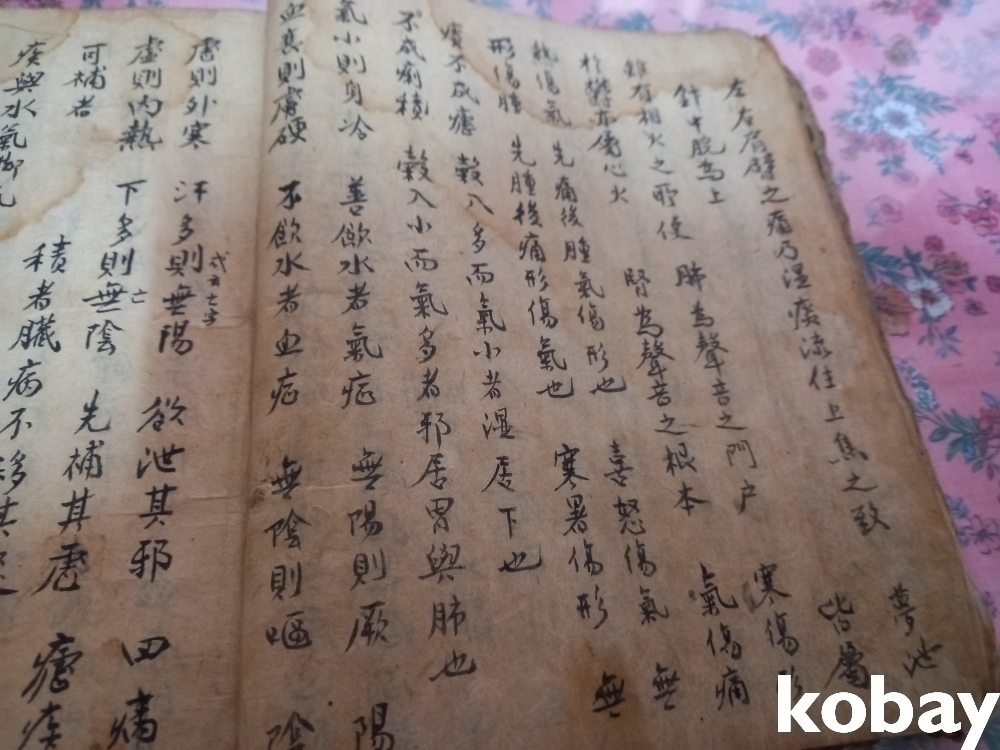 左右肩臂之痛乃湿痰流住上焦之致 夢泄
皆屬
針中脘為上 肺為聲音之門户 寒傷形
雖有相火之所使 腎為聲音之根本 氣傷痛
於欝亦傷心火 喜怒傷氣 無
熱傷氣 先痛後腫氣傷形也 寒暑傷形 無
形傷腫 先腫後痛形傷氣也
痰不成瘧 穀入多而氣小者湿居下也
不成痢積 穀入小而氣多者邪居胃與肺也
氣小則身冷 善飲水者氣症 無陽則厥 陽
血衰則膚硬 不飲水者血症 無陰則嘔 陰
虚則外寒 汗多則無陽 欲泄其邪 四
虛則內熱 下多則亡無陰 先補其虗
可補者 積者臟病不移其
痰與水氣
kobay